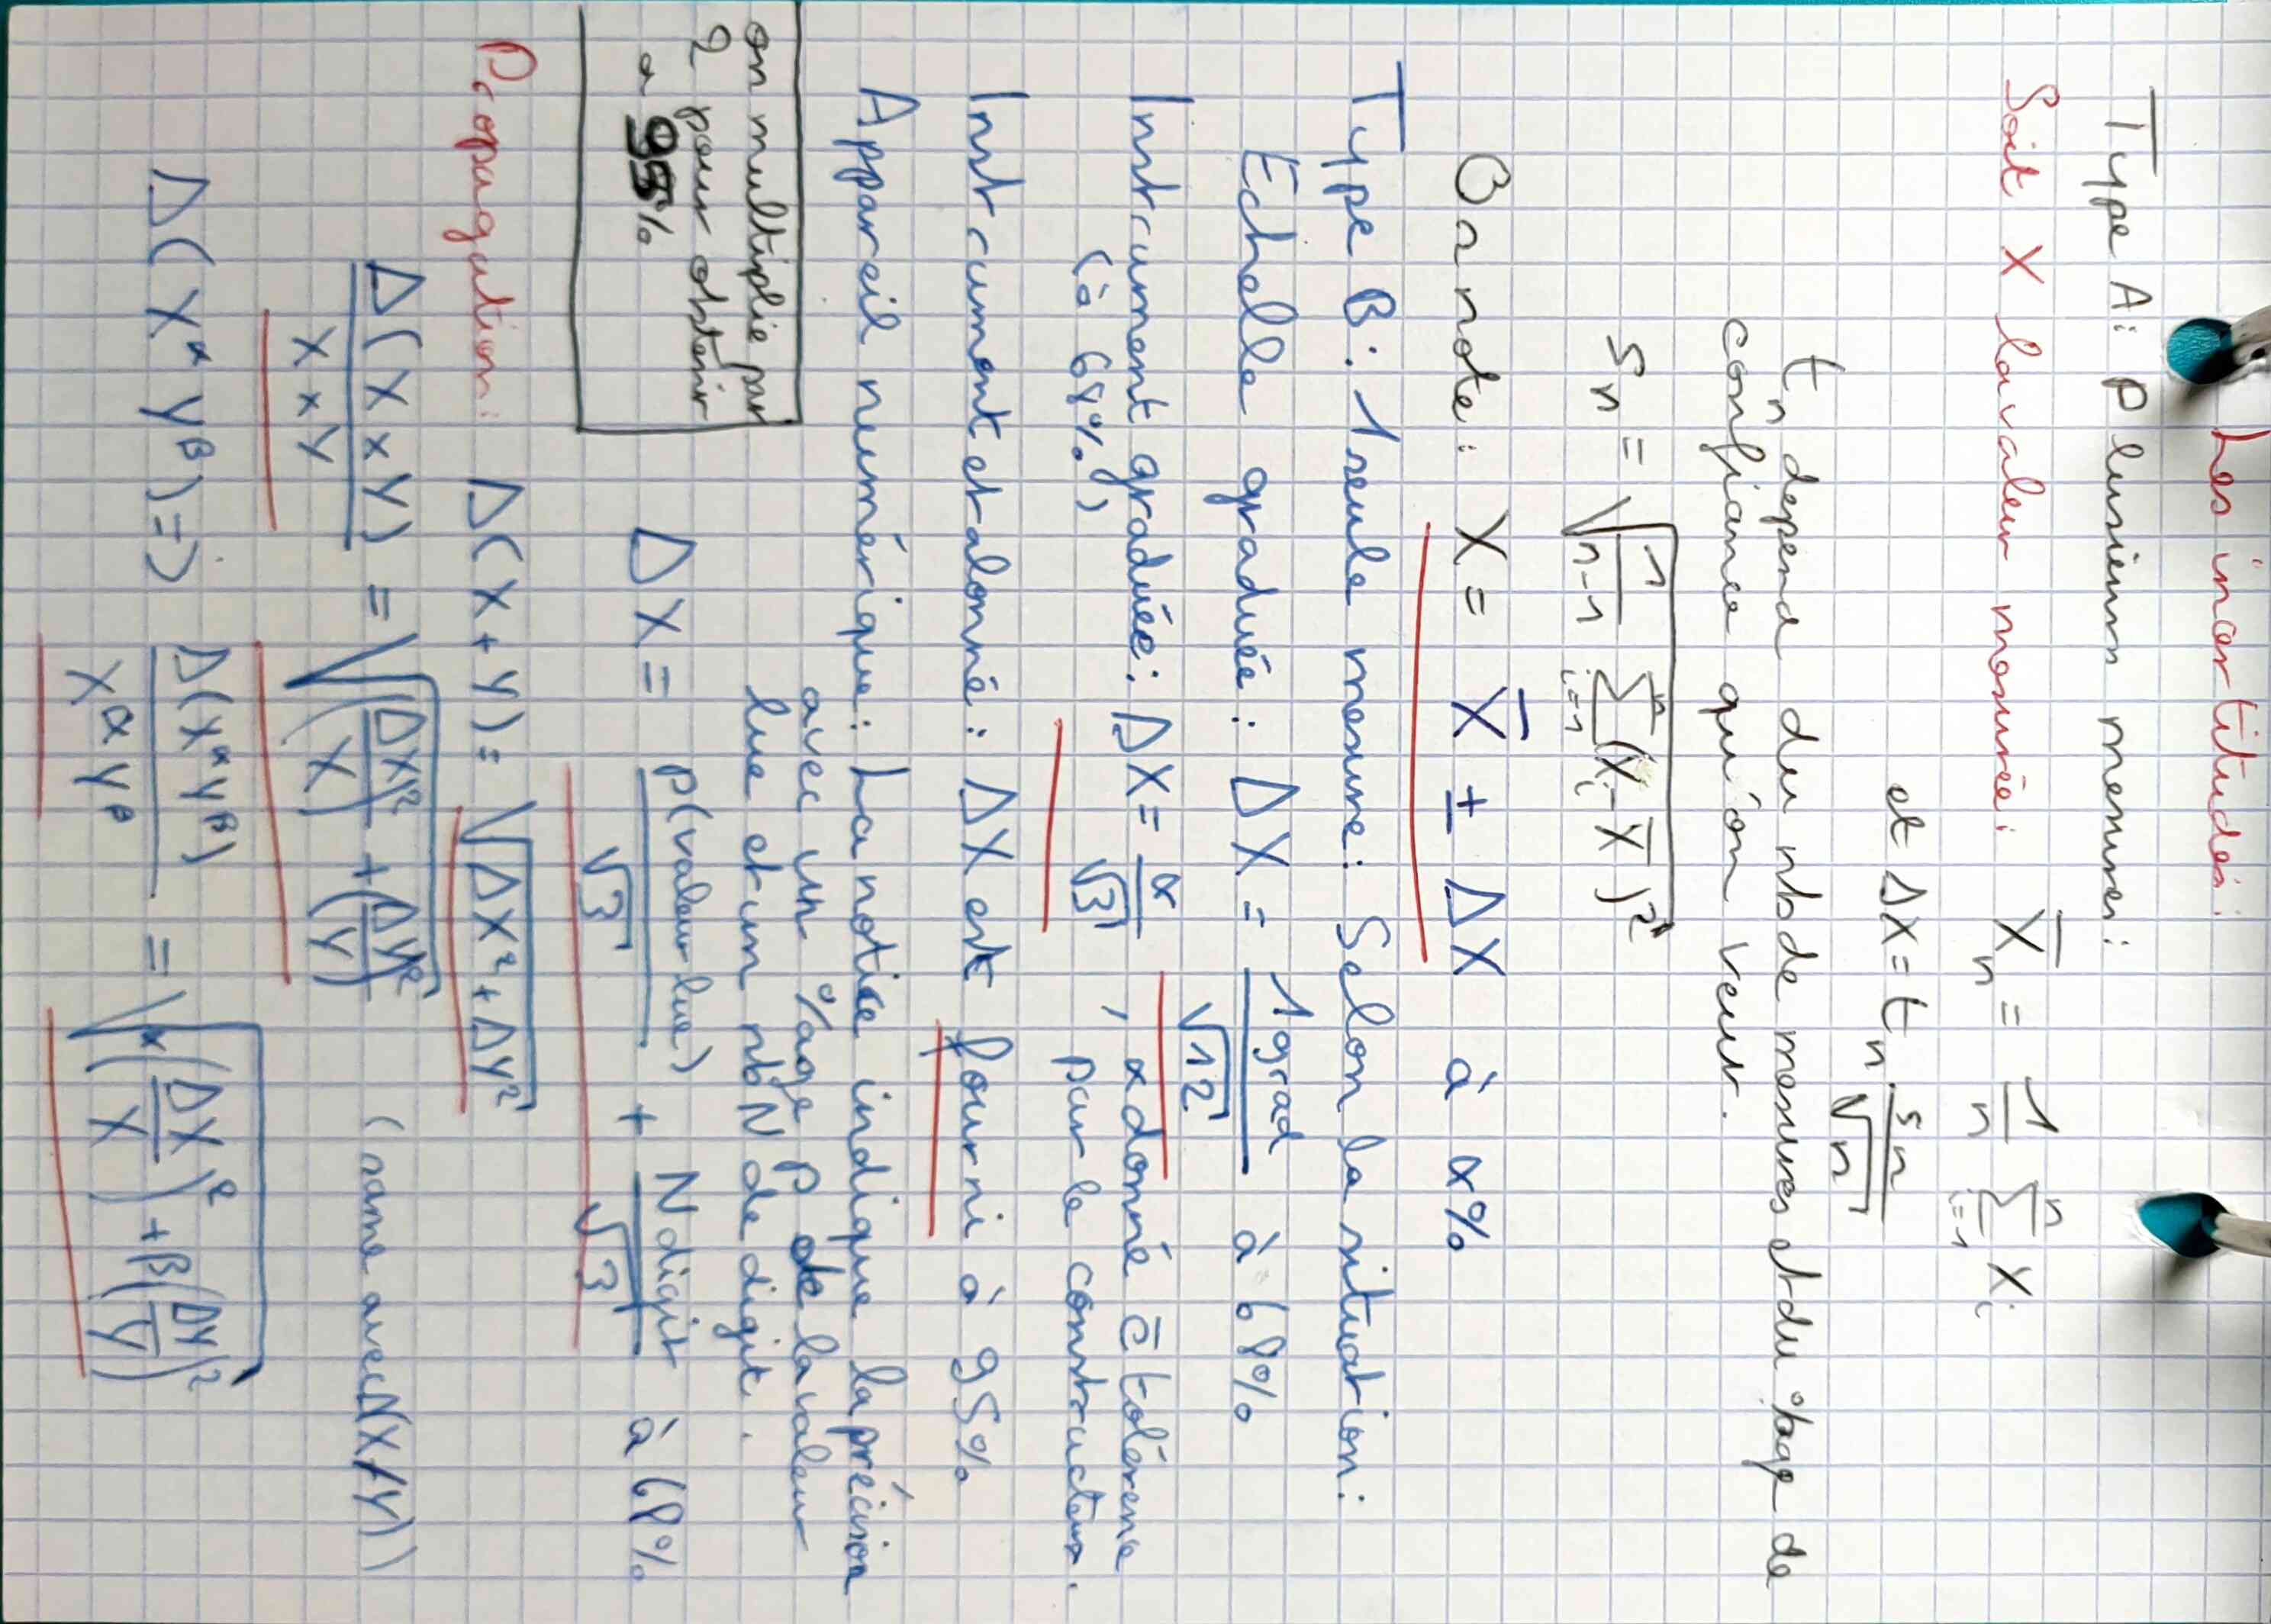 Les incertitudes:
Type A: Plusieurs mesures:
Soit X la valeur mesurée: X̄n = 1/n ∑(i=1 → n) Xi
et ΔX = tn sn/√n
tn depend du nb de mesures et du %age de
confiance qu'on veut.
sn = √(1/(n-1) ∑(i=1 → n) (Xi - X̄)²)
On note: X = X̄ ± ΔX à α%
Type B: 1 seule mesure: Selon la situation:
Echelle graduée: ΔX = 1grad/√12 à 68%
Instrument graduée: ΔX = α/√3, α donné c̄ tolérence
(à 68%) par le constructeur.
Instrument etalonné: ΔX est fourni à 95%
Appareil numérique: La notice indique la précision
avec un %age P de la valeur
lue et un nb N de digit.
on multiplie par
2 pour obtenir
a 95%
ΔX = P(valeur lue)/√3 + N digit/√3 à 68%
Propagation: Δ(X+Y) = √(ΔX² + ΔY²)
Δ(X×Y)/(X×Y) = √((ΔX/X)² + (ΔY/Y)²) (same avec Δ(X/Y))
Δ(X^α Y^β) => Δ(X^α Y^β)/(X^α Y^β) = √(α(ΔX/X)² + β(ΔY/Y)²)